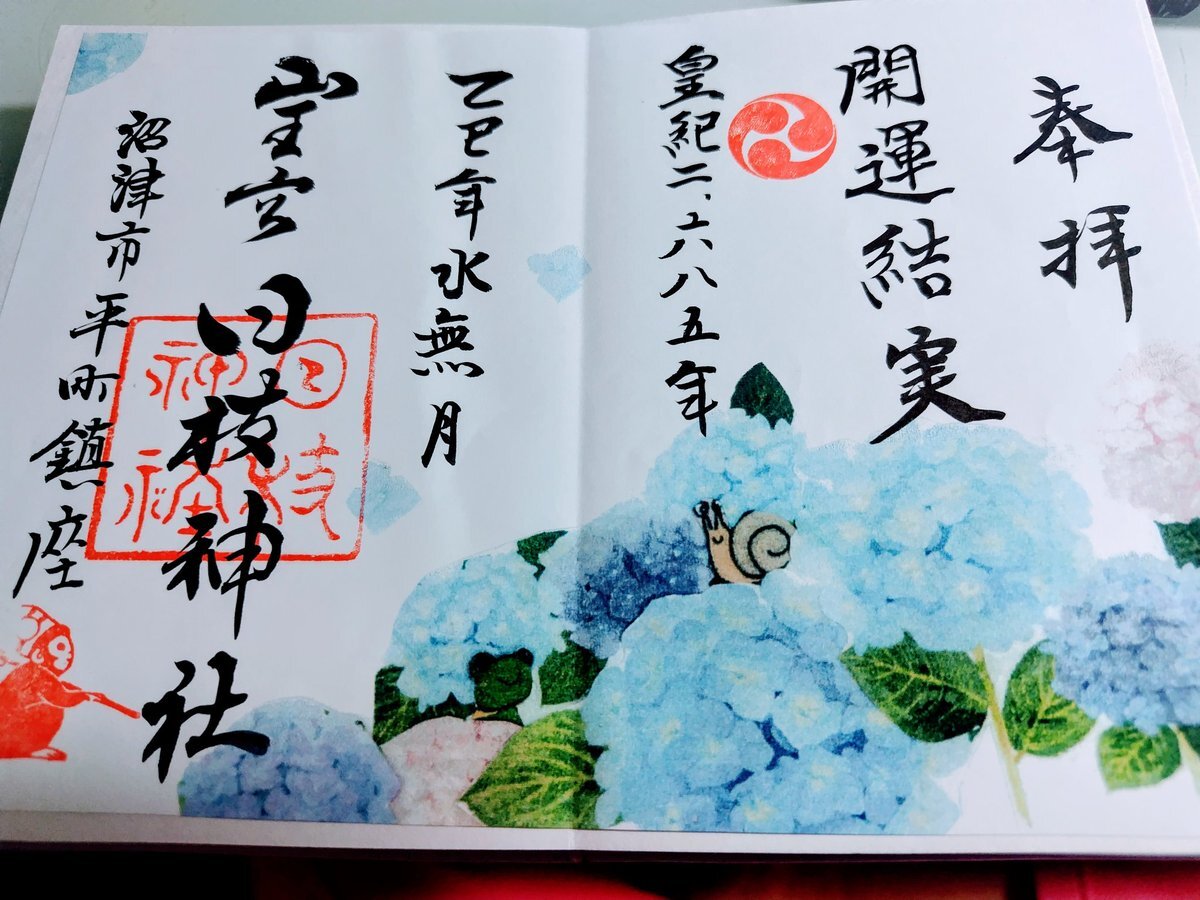 奉拝
開運結実
皇紀二、六八五年
乙巳年水無月
山王宮 日枝神社
日枝
神社
沼津市平町鎮座